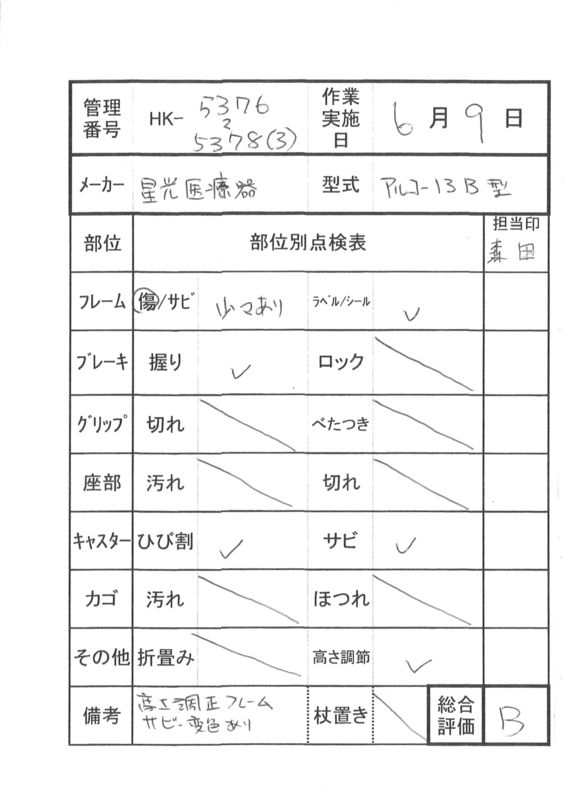 管理番号 HK- 5376 2 5378(3) 作業実施日 6月9日
メーカー 星光医療器 型式 アルコー13B型
部位 部位別点検表 担当印 森田
フレーム 傷/サビ 少々あり ラベル/シール ✓
ブレーキ 握り ✓ ロック
グリップ 切れ べたつき
座部 汚れ 切れ
キャスター ひび割 ✓ サビ ✓
カゴ 汚れ ほつれ
その他 折畳み 高さ調節 ✓
備考 高さ調正フレーム 杖置き 総合評価 B
サビ変色あり